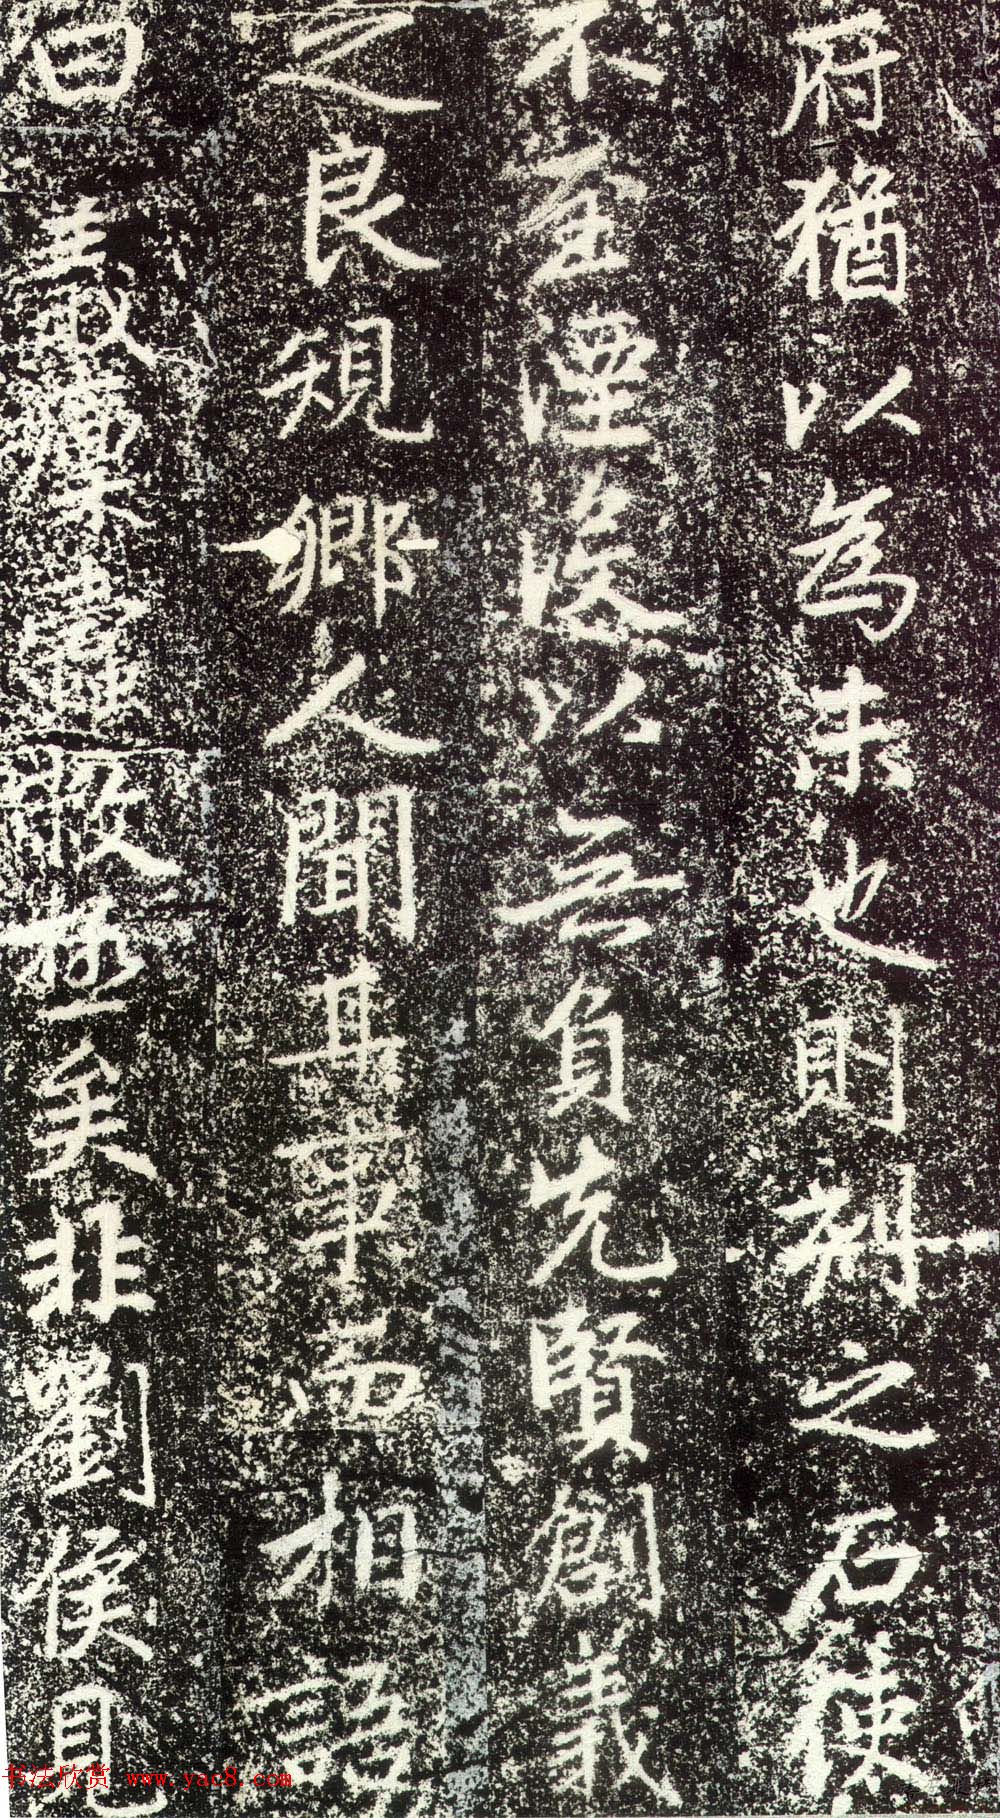 府猶以為未也則刻之石使
不至湮淩以無負先賢創義
之良規鄉人聞其事而相語
曰義稟蠹敝極矣非劉侯見
书法欣赏 www.yac8.com